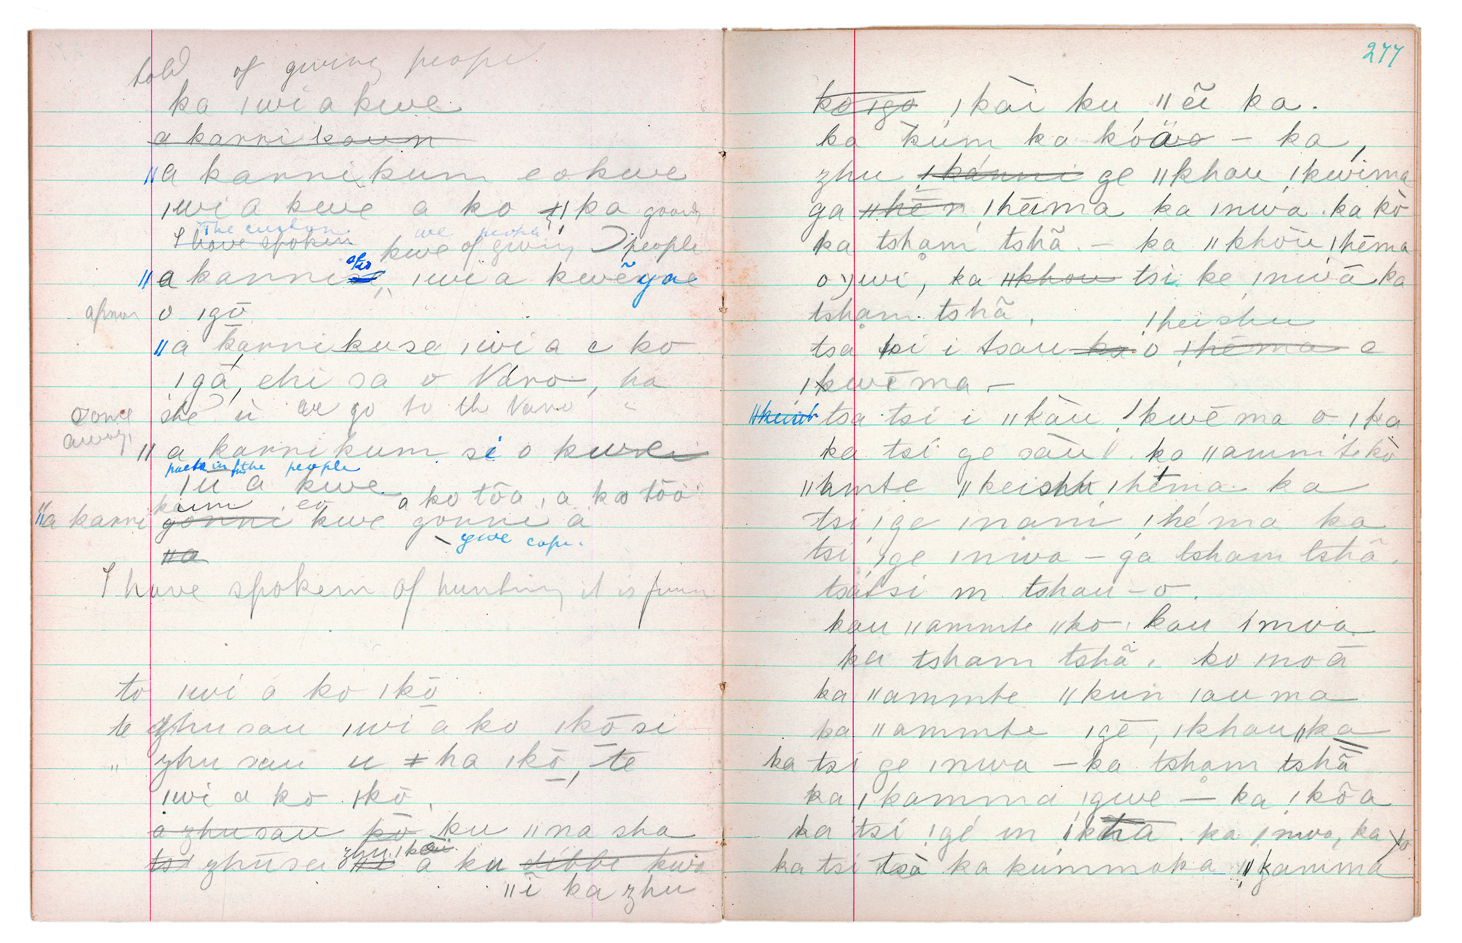 told of giving people
ka ıwi a kwe
a karri kaun
ǁa karri kum eo kwe
ıwi a kwe a ko ka goody
The custom we people
I have spoken kwe of giving people
ǁa karri ıwi a kwe yae
o ıgō
ǁa karrikuse ıwi a e ko
ıgā, ehi sa o Varo, ha
she u we go to the Varo
some
away,
ǁ a karrikum si o kwe
pack in the people
ıu a kwe
a ko tōa, a ka tōo
kum eo
ǁa karri gonni kwe gonni a
give cape.
ǁa
I have spoken of hunting it is
to ıwi a ko ıkō
te zhu sau ıwi a ko ıkō si
" zhu sau u ǂha ıkō, te
ıwi a ko ıkō,
a zhu sau ko ku ǁna sha
zhusi a ku dibbi kwa
ǁi ka zhu
277
ko ıgo ıkài ku ǁẽi ka.
ka kúm ka kóäo – ka,
zhu !kánni ge ǁkhou !kwima
ga ǁhēn !hēıma ka ınwa ka kò
ka tsham tshã – ka ǁkhōu !hēma
ka ǁkhou tsi ke ınwā ka
tsham tshã,
!heishu
tsa tsi i tsau ka o !hēma e
!kwēma –
tsa tsi i ǁkàu !kwēma o !ka
ka tsi ge sàu ka ǁammte kò
ǁamte ǁkeishu !héma ka
tsi !ge ınani !héma ka
tsi !ge ınwa – ga tsham tshã.
tsa tsi m tshau – o.
kau ǁammte ǁko kau ınwa
ka tsham tshã, ko ınoā
ka ǁammte ǁkun ıau ma
ka ǁammte ıgē, ıkhau ǁka
ka tsi ge ınwa – ka tsham tshã
ka !kamma !gwe – ka !kōa
ka tsi !gé m !kha ka !nwa, ka
ka tsi tsà ka kúmmoka ǁkamma